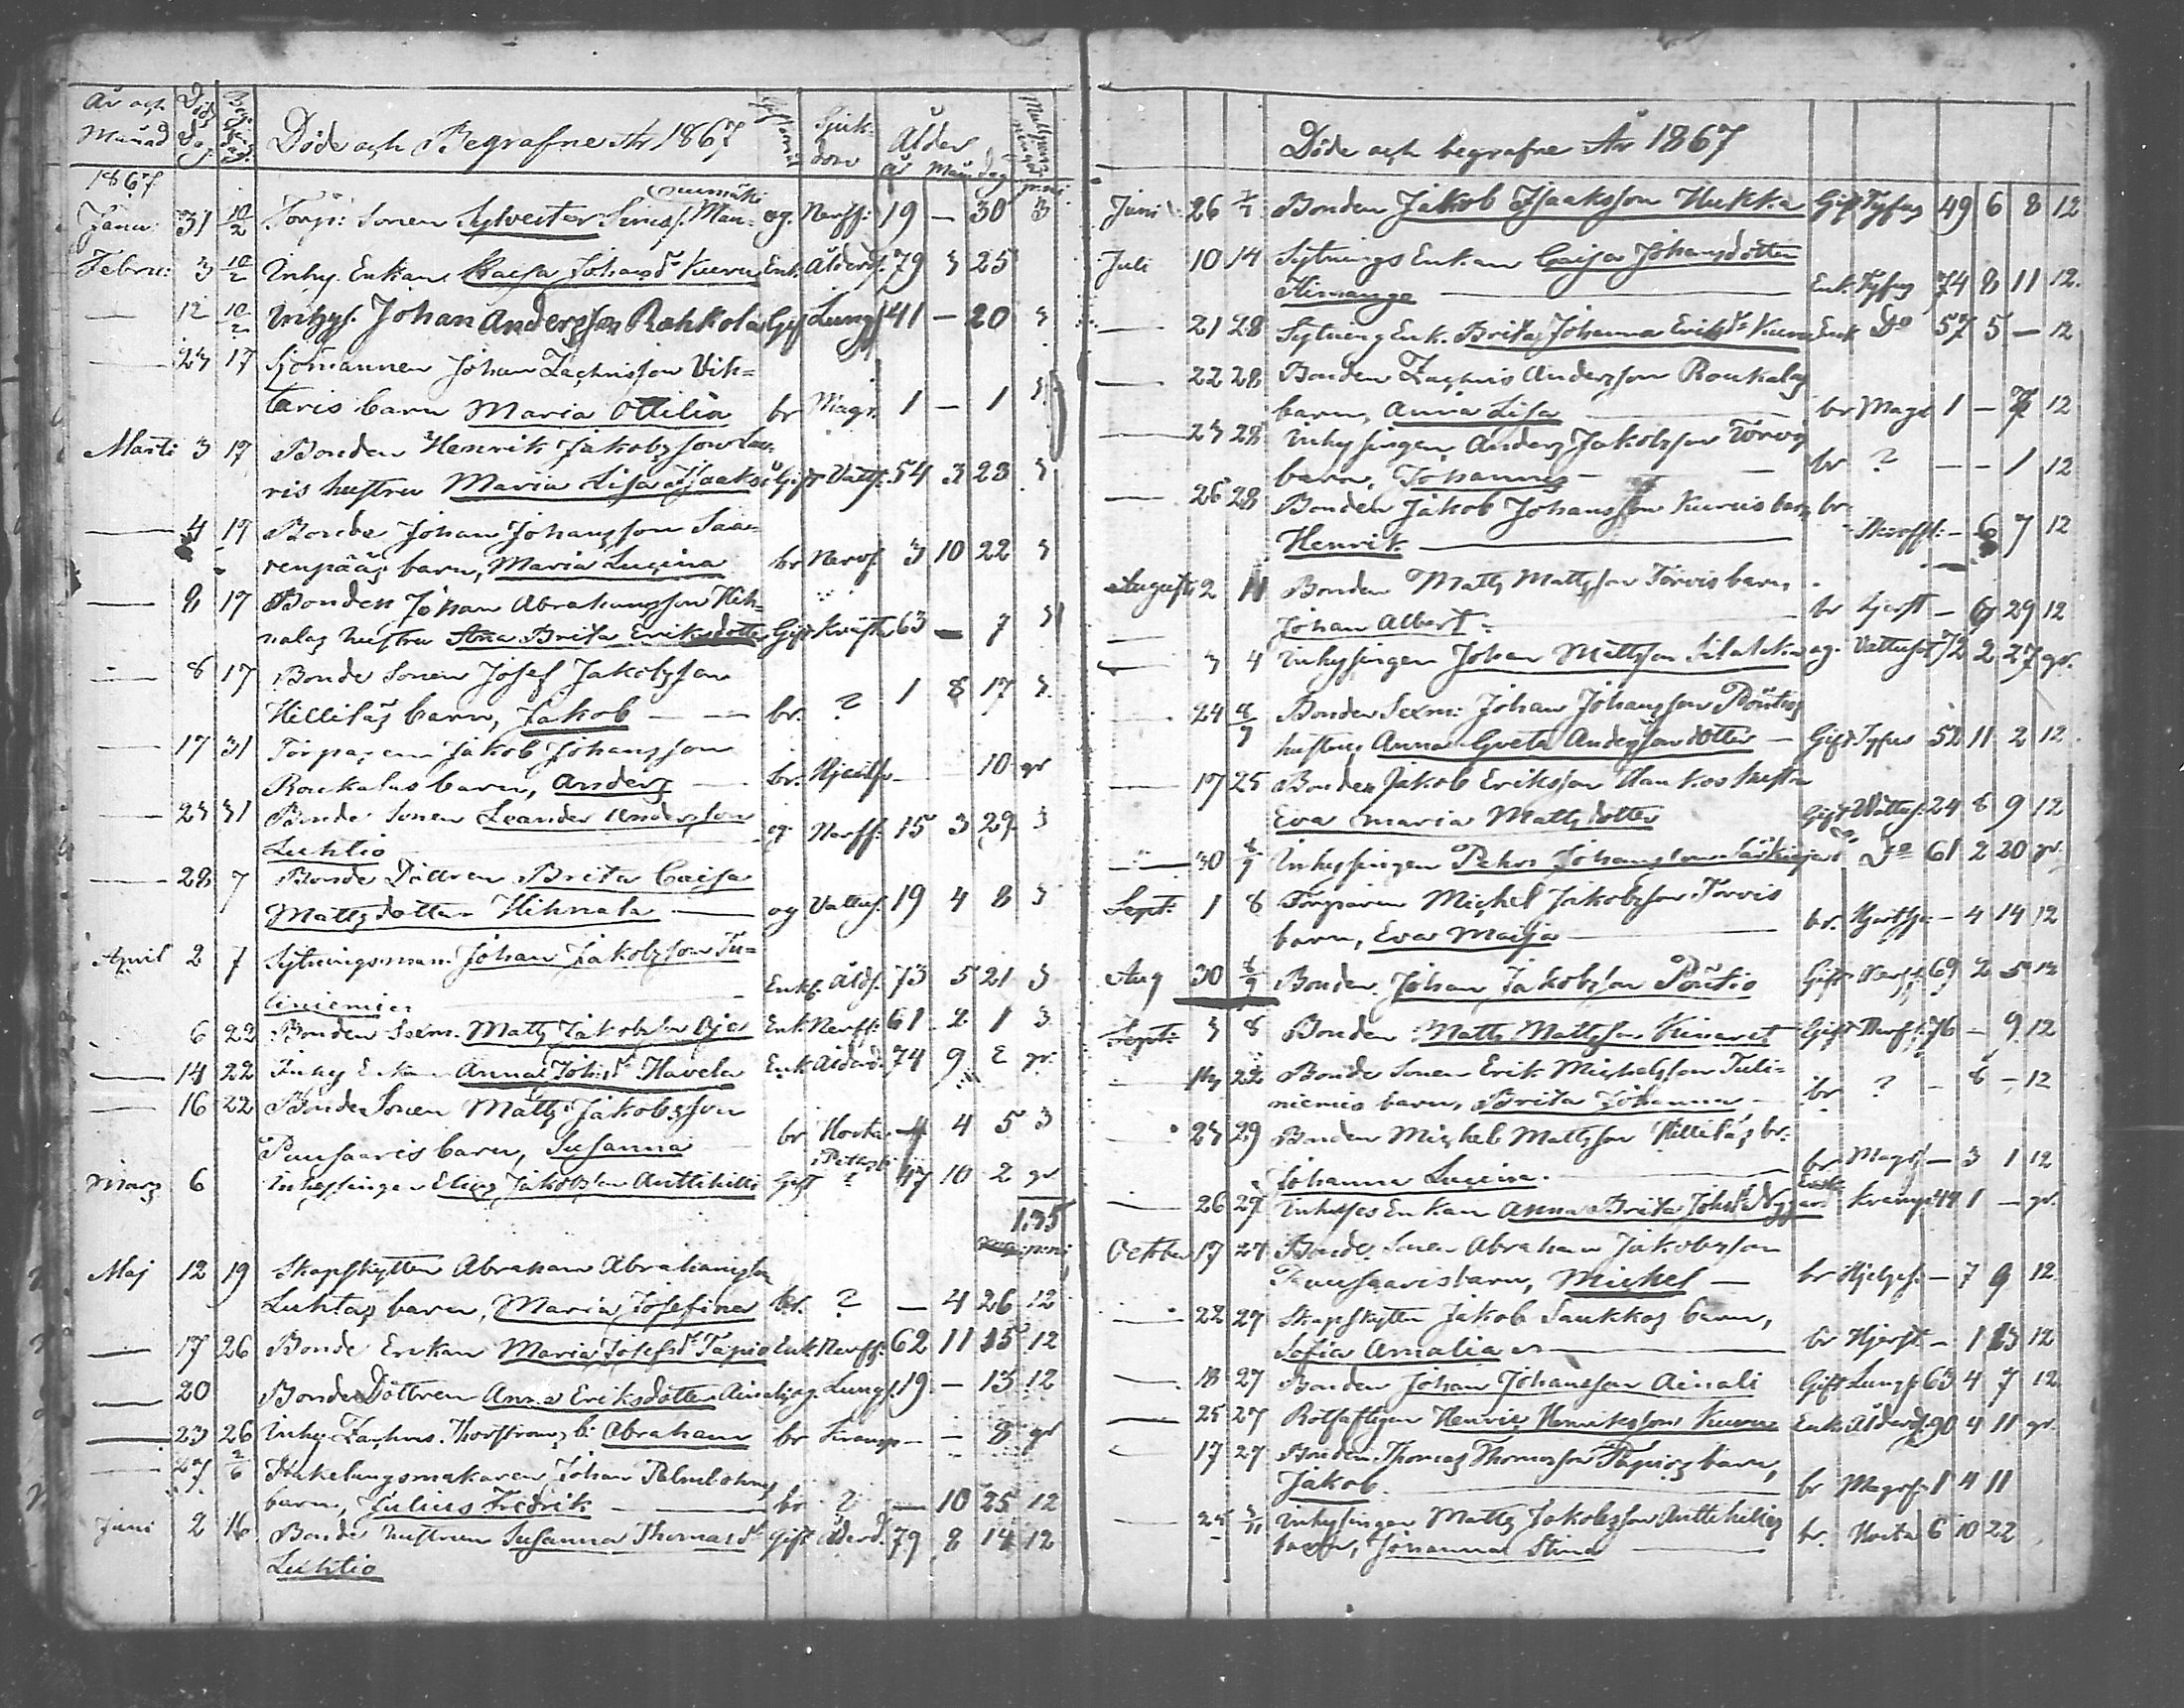 År och Månad Döds dag Begr: dag Döde och Begrafne År 1867 Sjuk-dom Ålder år Mån dag
1867
Janu: 31 10/2 Torp: Sonen Sylvester Simss: Man- og. Nervf: 19 — 30 3
Febru: 3 10/2 Inhy. Enkan Caisa Johansdr Kuru Enk. Ålderd. 79 3 25
— 12 10/2 Inhys. Johan Andersson Rahkola Gif Lungs 41 — 20 3
— 23 17 Sjömannen Johan Zachrisson Vik=
taris barn Maria Ottilia br Mags. 1 — 1 3
Marti 3 17 Bonden Henrik Jakobsson Lau
ris hustru Maria Lisa Isaaksd Gift Vatts. 54 3 23 3
— 4 17 Bonde Johan Johansson Saa-
renpääs barn, Maria Lucina br Nervf 3 10 22 3
— 8 17 Bonden Johan Abrahamsson Hih=
nalas hustru Stina Brita Eriksdotter Gift Kräfta 63 — 7 3
— 8 17 Bonde Sonen Josef Jakobsson
Hilliläs barn, Jakob — — br. ? 1 8 17 3.
— 17 31 Torparen Jakob Johansson
Roukalas barn, Anders — br. Hjertf — 10 gr
— 23 31 Bonde Sonen Leander Andersson
Luhtio — og Nervf. 15 3 29 3
— 28 7 Bonde Dottren Brita Caisa
Mattsdotter Hihnala — og Vattus. 19 4 8 3
April 2 7 Sytningsman Johan Jakobsson Tu=
liniemi Enkl. Åldf. 73 5 21 3
6 22 Bonden Sexm. Matts Jakobsson Oja Enk Nervf. 61 2 1 3
— 14 22 Inhy Enkan Anna Johsdr Havela Enk Ålderd. 74 9 2 gr.
— 16 22 Bonde Sonen Matts Jakobsson
Puusaaris barn, Susanna br Hosta 4 4 5 3
Mars 6 Inhysingen Elias Jakobsson Anttihilli Gift ? 47 10 2 gr
1.35
Maj 12 19 Skarpskytten Abraham Abrahamsson
Luhtas barn, Maria Josefina br. ? — 4 26 12
— 17 26 Bonde Enkan Maria Josefsdr Tapio Enk Nervf. 62 11 15 12
— 20 Bonde Dottren Anna Eriksdotter Ainali og. Lungs. 19 — 13 12
— 23 26 Inhy Zachris Thorströms b. Abraham br Kramp — — 8 gr
— 27 2/6 Kakelugnsmakaren Johan Palmbohms
barn, Julius Fredrik — br ? — 10 25 12
Juni 2 16 Bonde hustrun Susanna Thomasdr Gift Ålderd. 79 8 14 12
Luhtio
Döde och begrafne År 1867
Juni 26 7/7 Bonden Jakob Isaaksson Hukka Gift Tyfus 49 6 8 12
Juli 10 14 Sytnings Enkan Caisa Johansdotter
Himanga — Enk. Tyfus 74 8 11 12.
— 21 28 Sytning Enk. Brita Johanna Eriksdr Kuru Enk Do 57 5 — 12
— 22 28 Bonden Zachris Andersson Roukalas
barn, Anna Lisa br Mags 1 — 7 12
— 23 28 Inhysingen Anders Jakobsson Torvis
barn, Johannes — br ? — — 1 12
— 26 28 Bonden Jakob Johansson Kuruis barn br
Henrik — Nervf: — 6 7 12
Augusti 2 11 Bonden Matts Mattsson Torvis barn
Johan Albert br Hjertf — 6 29 12
— 3 4 Inhysingen Johan Mattsson Silakka og. Vattus. 72 2 27 gr.
— 24 8/9 Bonden Sexm: Johan Johansson Pöntiös
hustru Anna Greta Andersson dotter — Gift Tyfus 52 11 2 12
— 17 25 Bonden Jakob Eriksson Haukos hustru
Eva Maria Mattsdotter Gift Vattus. 24 8 9 12
— 30 8/9 Inhysingen Pehr Johansson Särkioja Do 61 2 20 gr.
Sept: 1 8 Torparen Michel Jakobsson Torvis
barn, Eva Maija — br. Hjertf — 4 14 12
Aug 30 8/9 Bonden Johan Jakobsson Pöntiö Gift Nervf 69 2 5 12
Sept: 3 8 Bonden Matts Mattsson Kinaret Gift Nervf. 76 — 9 12
— 14 22 Bonde Sonen Erik Michelsson Tuli=
niemis barn, Brita Johanna — br ? — 8 — 12
23 29 Bonden Michel Mattsson Hilliläs br.
Johanna Lucina. — br Mags — 3 1 12
— 26 29 Inhyses Enkan Anna Brita Johsdr Nygår Enk Kramp 49 1 — gr.
October 17 27 Bonde Sonen Abraham Jakobsson
Puusaaris barn, Michel — br Hjelps. — 7 9 12
— 22 27 Skarpskytten Jakob Saukkos barn,
Sofia Amalia — br Hjertf — 1 13 12
— 18 27 Bonden Johan Johansson Ainali Gift Lungs 63 4 7 12
— 25 27 Rotfattigen Henric Henriksson Kuru Enk. Ålderd. 90 4 11 gr.
— 17 27 Bonden Thomas Thomasson Tapios barn,
Jakob. — br Magsf. 1 4 11
— 25 3/11 Inhysingen Matts Jakobsson Anttihillis
barn, Johanna Stina — br. Hosta 6 10 22